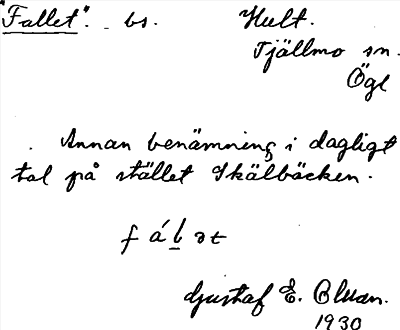 "Fallet". bs. Hult.
Tjällmo sn.
Ögl
Annan benämning i dagligt
tal på stället Skälbäcken.
Gustaf E.
1930